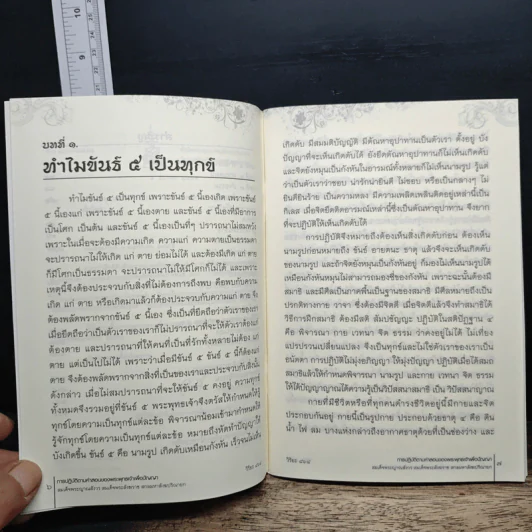 บทที่ ๑.
ทำไมขันธ์ ๕ เป็นทุกข์
ทำไมขันธ์ ๕ เป็นทุกข์ เพราะขันธ์ ๕ นี้เองเกิด เพราะขันธ์
๕ นี้เองแก่ เพราะขันธ์ ๕ นี้เองตาย และขันธ์ ๕ นี้เองที่มีอาการ
เป็นโศก เป็นต้น และขันธ์ ๕ นี้เองเป็นที่ๆ ปรารถนาไม่สมหวัง
เพราะในเมื่อจะต้องมีความเกิด ความแก่ ความตายเป็นธรรมดา
จะปรารถนาไม่ให้เกิด แก่ ตาย ย่อมไม่ได้ และต้องมีเกิด แก่ ตาย
ก็มีโศกเป็นธรรมดา จะปรารถนาไม่ให้มีโศกก็ไม่ได้ และเพราะ
เหตุนี้จึงต้องประจวบกับสิ่งที่ไม่ต้องการถึงพบ คือพบกับความ
เกิด แก่ ตาย หรือเกิดมาแล้วก็ต้องประจวบกับความแก่ ตาย จึง
ต้องพลัดพรากจากขันธ์ ๕ นี้เอง ซึ่งเป็นที่ยึดถือว่าตัวเราของเรา
เมื่อยึดถือว่าเป็นตัวเราของเราก็ไม่ปรารถนาที่จะให้ตัวเราต้องแก่
ต้องตาย และปรารถนาที่ให้คนที่เป็นที่รักทั้งหลายไม่ต้องแก่
ตาย แต่เป็นไปไม่ได้ เพราะว่าเมื่อมีขันธ์ ๕ ขันธ์ ๕ นี้ก็ต้องแก่
ตาย จึงต้องพลัดพรากจากสิ่งที่เป็นของเราและประจวบกับสิ่งนั้น
ดังกล่าว เมื่อไม่สมปรารถนาที่จะให้ขันธ์ ๕ คงอยู่ ความทุกข์
ทั้งหมดจึงรวมอยู่ที่ขันธ์ ๕ พระพุทธเจ้าจึงตรัสให้กำหนดให้รู้
ทุกข์โดยความเป็นทุกข์แต่ละข้อ พิจารณาน้อมเข้ามากำหนดให้
รู้จักทุกข์โดยความเป็นทุกข์แต่ละข้อ หมายถึงหัดทำปัญญาให้
บังเกิดขึ้น ขันธ์ ๕ คือ นามรูป เกิดดับเหมือนกังหัน เร็วจนไม่เห็น
๖
การปฏิบัติทางศาสนาของพระพุทธเจ้าเพื่อปัญญา
สมเด็จพระญาณสังวร สมเด็จพระสังฆราช สกลมหาสังฆปริณายก
เกิดดับ มีสมมติบัญญัติ มีตัณหาอุปาทานเป็นตัวเรา ตั้งอยู่ บัง
ปัญญาที่จะเห็นเกิดดับได้ ยังยึดตัณหาอุปาทานก็ไม่เห็นเกิดดับ
และจิตยังหมุนเป็นกังหันในอารมณ์ทั้งหลายก็ไม่เห็นนามรูป รู้แค่
ว่าเป็นตัวเราว่าชอบ น่ารักน่ายินดี ไม่ชอบ หรือเป็นกลางๆ ไม่
ยินดียินร้าย เป็นความหลง มีความเพลิดเพลินติดอยู่เหล่านี้เป็น
กิเลส เมื่อจิตยึดติดอารมณ์เหล่านี้ซึ่งเป็นตัณหาอุปาทาน จึงยาก
ที่จะปฏิบัติให้เห็นเกิดดับได้
การปฏิบัติจึงหมายถึงต้องเห็นสิ่งเกิดดับก่อน ต้องเห็น
นามรูปก่อนหมายถึง ขันธ์ อายตนะ ธาตุ แล้วจึงจะเห็นเกิดดับ
ของนามรูป และถ้าจิตยังหมุนเป็นกังหันอยู่ ก็มองไม่เห็นนามรูปได้
เหมือนกังหันหมุนไม่สามารถมองซี่ของกังหัน เพราะฉะนั้นต้องมี
สมาธิ และมีศีลเป็นภาคพื้นเป็นฐานของสมาธิ มีศีลหมายถึงเป็น
ปรกติทางกาย วาจา ซึ่งต้องมีจิตดี เมื่อจิตดีแล้วจึงทำสมาธิได้
วิธีการฝึกสมาธิ ต้องมีสติ สัมปชัญญะ ปฏิบัติในสติปัฏฐาน ๔
คือ พิจารณา กาย เวทนา จิต ธรรม ว่าคงอยู่ไม่ได้ ไม่เที่ยง
แปรปรวนเปลี่ยนแปลง จึงเป็นทุกข์และไม่ใช่ตัวเราของเราเป็น
อนัตตา การปฏิบัติไม่มุ่งอภิญญา ให้มุ่งปัญญา ปฏิบัติเมื่อได้สมถ
สมาธิแล้วให้กำหนดพิจารณา นามรูป และกาย เวทนา จิต ธรรม
ให้ได้ปัญญาญาณได้ความรู้เป็นวิปัสสนาสมาธิ เป็น วิปัสสนาญาณ
กายที่มีชีวิตหรือที่ทุกคนดำรงชีวิตอยู่นี้มีกายและจิต
ประกอบกันอยู่ กายนี้เป็นรูปกาย ประกอบด้วยธาตุ ๔ คือ ดิน
น้ำ ไฟ ลม บางแห่งกล่าวถึงอากาศธาตุด้วยที่เป็นช่องว่าง และ
การปฏิบัติทางศาสนาของพระพุทธเจ้าเพื่อปัญญา
สมเด็จพระญาณสังวร สมเด็จพระสังฆราช สกลมหาสังฆปริณายก
๗